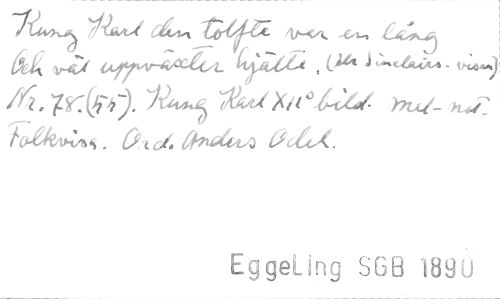 Kung Karl den tolfte var en lång
Och väl uppväxter hjälte, (Ur Sinclairs-visan)
Nr. 78. (55). Kung Karl XII° bild. med not.
Folkvisa. Ord. Anders Odel.
EggeLing SGB 1890